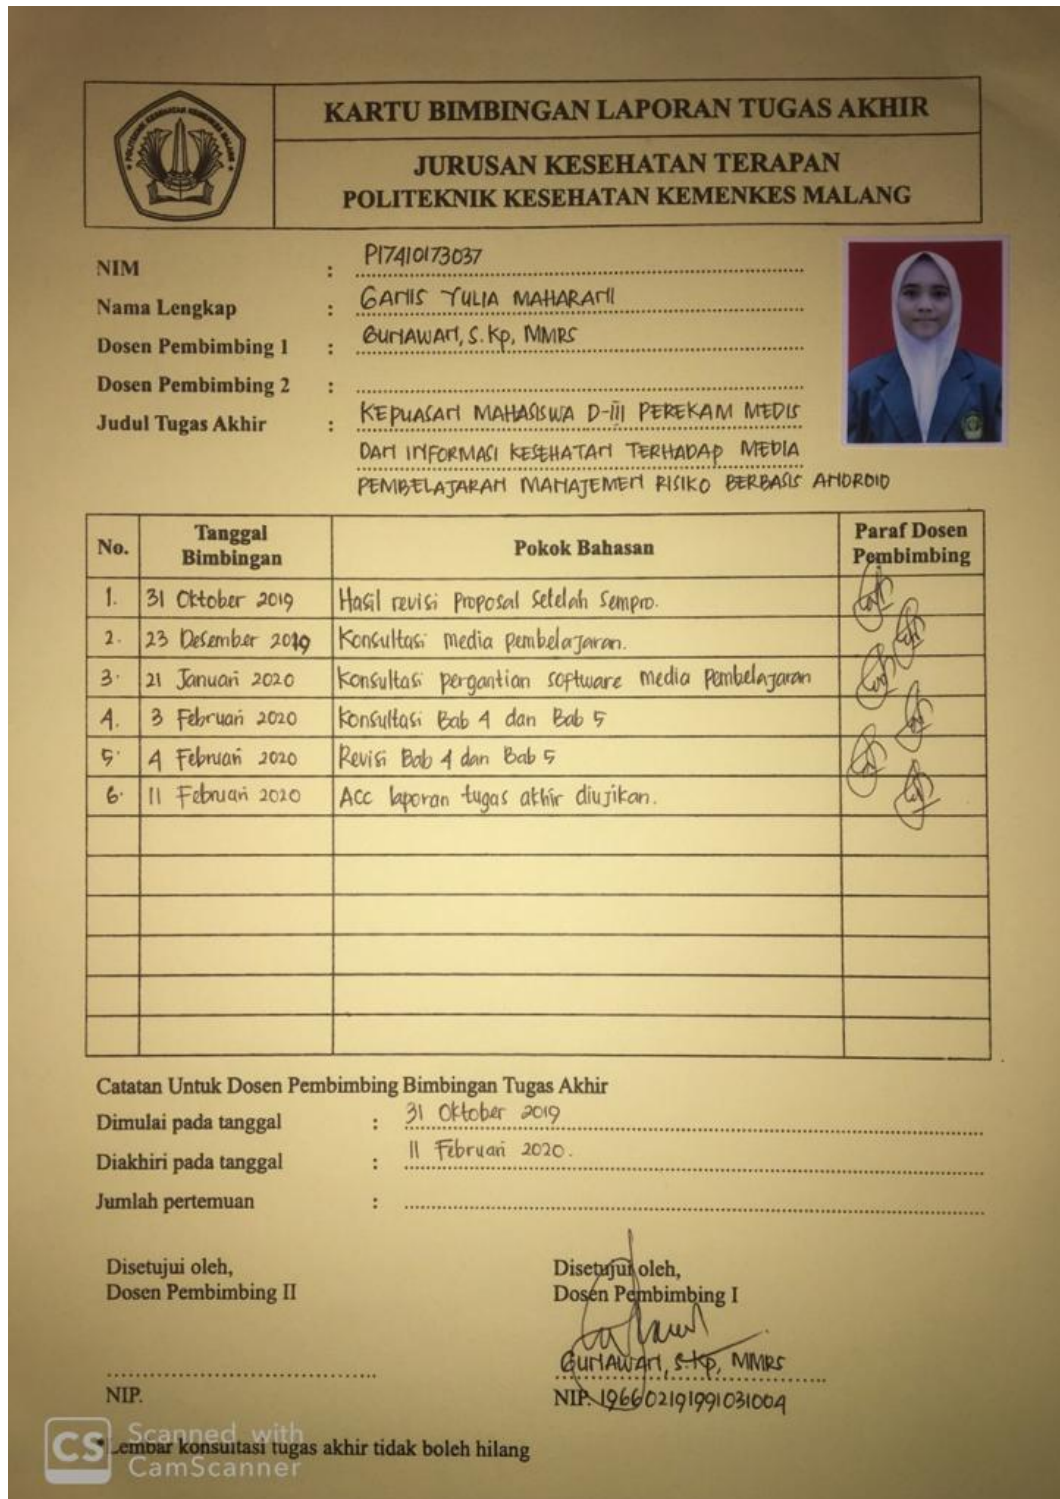 POLITEKNIK KESEHATAN KEMENKES MALANG
KARTU BIMBINGAN LAPORAN TUGAS AKHIR
JURUSAN KESEHATAN TERAPAN
POLITEKNIK KESEHATAN KEMENKES MALANG
NIM : P17410173037
Nama Lengkap : GANIS YULIA MAHARANI
Dosen Pembimbing 1 : GUNAWAN, S.Kp, MMRS
Dosen Pembimbing 2 :
Judul Tugas Akhir : KEPUASAN MAHASISWA D-III PEREKAM MEDIS
DAN INFORMASI KESEHATAN TERHADAP MEDIA
PEMBELAJARAN MANAJEMEN RISIKO BERBASIS ANDROID
No. Tanggal Bimbingan Pokok Bahasan Paraf Dosen Pembimbing
1. 31 Oktober 2019 Hasil revisi Proposal Setelah Sempro.
2. 23 Desember 2019 Konsultasi media pembelajaran.
3. 21 Januari 2020 Konsultasi pergantian software media Pembelajaran
4. 3 Februari 2020 Konsultasi Bab 4 dan Bab 5
5. 4 Februari 2020 Revisi Bab 4 dan Bab 5
6. 11 Februari 2020 Acc laporan tugas akhir diujikan.
Catatan Untuk Dosen Pembimbing Bimbingan Tugas Akhir
Dimulai pada tanggal : 31 Oktober 2019
Diakhiri pada tanggal : 11 Februari 2020.
Jumlah pertemuan :
Disetujui oleh, Disetujui oleh,
Dosen Pembimbing II Dosen Pembimbing I
GUNAWAN, S.Kp, MMRS
NIP. NIP. 196602191991031004
*Lembar konsultasi tugas akhir tidak boleh hilang
CS Scanned with
CamScanner